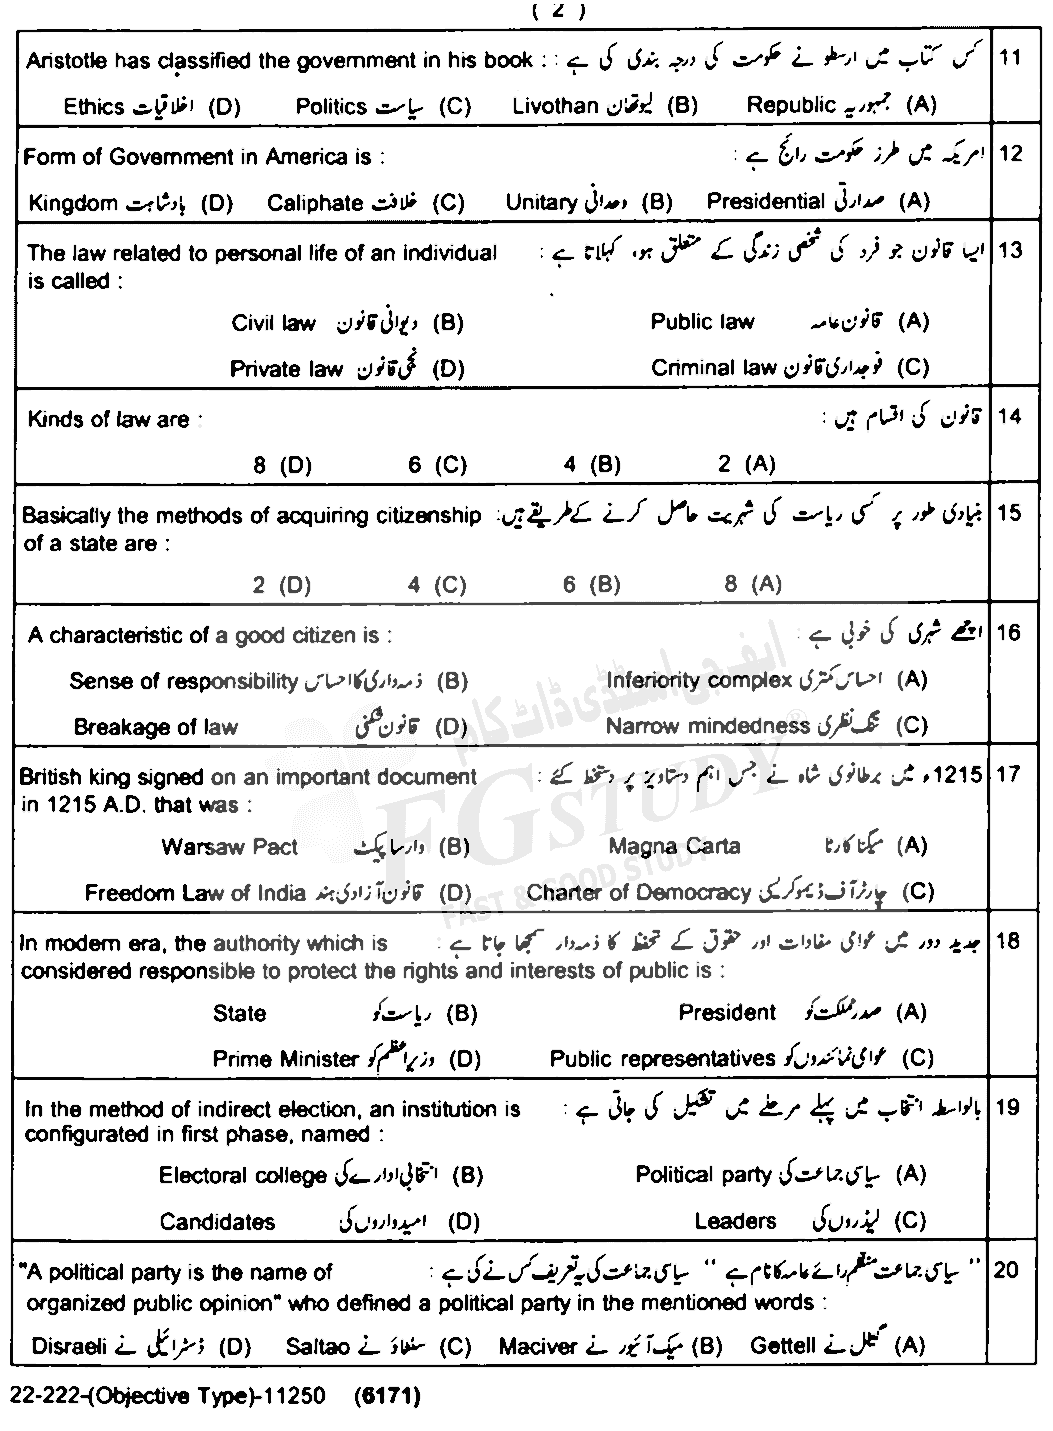 ( 2 )
Aristotle has classified the government in his book : : کس کتاب میں ارسطو نے حکومت کی درجہ بندی کی ہے 11
Ethics اخلاقیات (D) Politics سیاست (C) Livothan لیوتھان (B) Republic جمہوریہ (A)
Form of Government in America is : امریکہ میں طرز حکومت رائج ہے : 12
Kingdom بادشاہت (D) Caliphate خلافت (C) Unitary وحدانی (B) Presidential صدارتی (A)
The law related to personal life of an individual ایسا قانون جو فرد کی شخصی زندگی کے متعلق ہو، کہلاتا ہے : 13
is called :
Civil law دیوانی قانون (B) Public law قانون عامہ (A)
Private law نجی قانون (D) Criminal law فوجداری قانون (C)
Kinds of law are : قانون کی اقسام ہیں : 14
8 (D) 6 (C) 4 (B) 2 (A)
Basically the methods of acquiring citizenship بنیادی طور پر کسی ریاست کی شہریت حاصل کرنے کے طریقے ہیں: 15
of a state are :
2 (D) 4 (C) 6 (B) 8 (A)
A characteristic of a good citizen is : اچھے شہری کی خوبی ہے : 16
Sense of responsibility ذمہ داری کا احساس (B) Inferiority complex احساس کمتری (A)
Breakage of law قانون شکنی (D) Narrow mindedness تنگ نظری (C)
British king signed on an important document 1215ء میں برطانوی شاہ نے جس اہم دستاویز پر دستخط کئے : 17
in 1215 A.D. that was :
Warsaw Pact وارسا پیکٹ (B) Magna Carta میگنا کارٹا (A)
Freedom Law of India قانون آزادی ہند (D) Charter of Democracy چارٹر آف ڈیموکریسی (C)
In modern era, the authority which is جدید دور میں عوامی مفادات اور حقوق کے تحفظ کا ذمہ دار سمجھا جاتا ہے : 18
considered responsible to protect the rights and interests of public is :
State ریاست کو (B) President صدر مملکت کو (A)
Prime Minister وزیراعظم کو (D) Public representatives عوامی نمائندوں کو (C)
In the method of indirect election, an institution is بالواسطہ انتخاب میں پہلے مرحلے میں تشکیل کی جاتی ہے : 19
configurated in first phase, named :
Electoral college انتخابی ادارے کی (B) Political party سیاسی جماعت کی (A)
Candidates امیدواروں کی (D) Leaders لیڈروں کی (C)
"A political party is the name of " سیاسی جماعت منظم رائے عامہ کا نام ہے " سیاسی جماعت کی یہ تعریف کس نے کی ہے : 20
organized public opinion" who defined a political party in the mentioned words :
Disraeli ڈسرائیلی نے (D) Saltao سلٹاؤ نے (C) Maciver میک آئیور نے (B) Gettell گیٹل نے (A)
22-222-(Objective Type)-11250 (6171)
ایف جی اسٹڈی ڈاٹ کام
FGSTUDY ®
FAST & GOOD STUDY